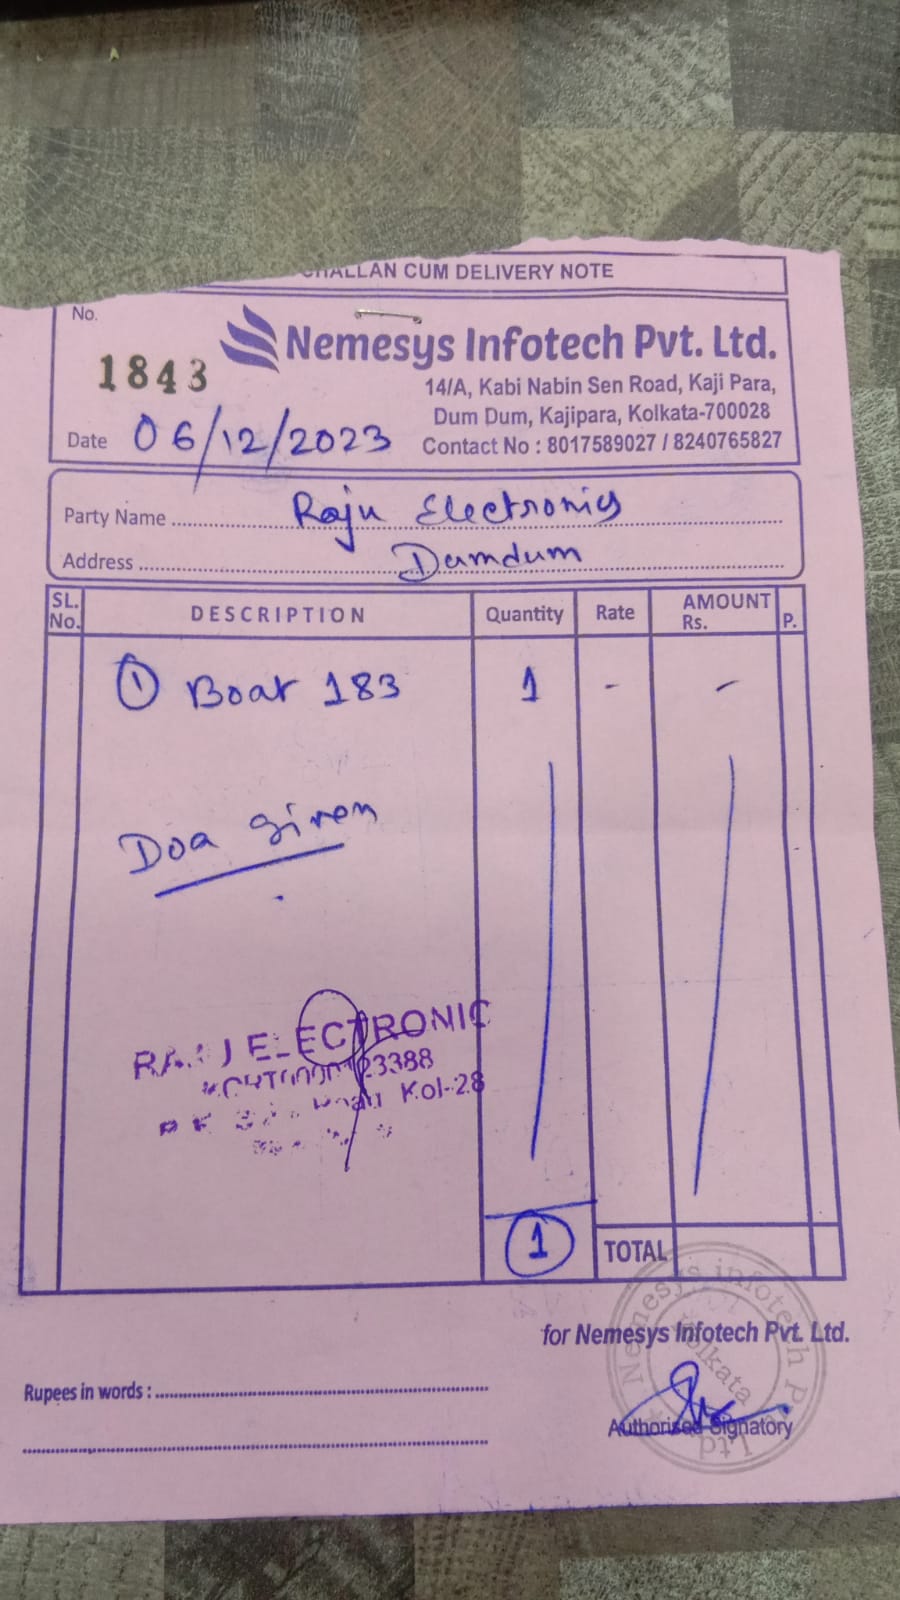 CHALLAN CUM DELIVERY NOTE
No.
1843
Nemesys Infotech Pvt. Ltd.
14/A, Kabi Nabin Sen Road, Kaji Para,
Dum Dum, Kajipara, Kolkata-700028
Contact No : 8017589027 / 8240765827
Date 06/12/2023
Party Name Raju Electronics
Address Dumdum
SL. No. DESCRIPTION Quantity Rate AMOUNT Rs. P.
① Boat 183 1 - -
Doa given
ELECTRONIC
23388
Road Kol-28
1 TOTAL
for Nemesys Infotech Pvt. Ltd.
Nemesys infotech P Ltd
Kolkata
Rupees in words :
Authorised Signatory